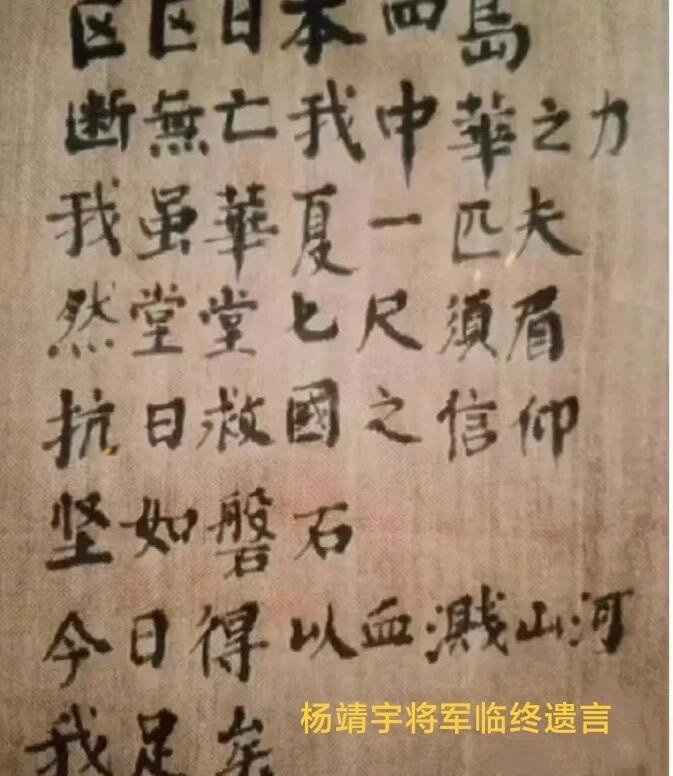 区区日本四島
断無亡我中華之力
我虽華夏一匹夫
然堂堂七尺須眉
抗日救國之信仰
坚如磐石
今日得以血濺山河
我足矣
杨靖宇将军临终遗言